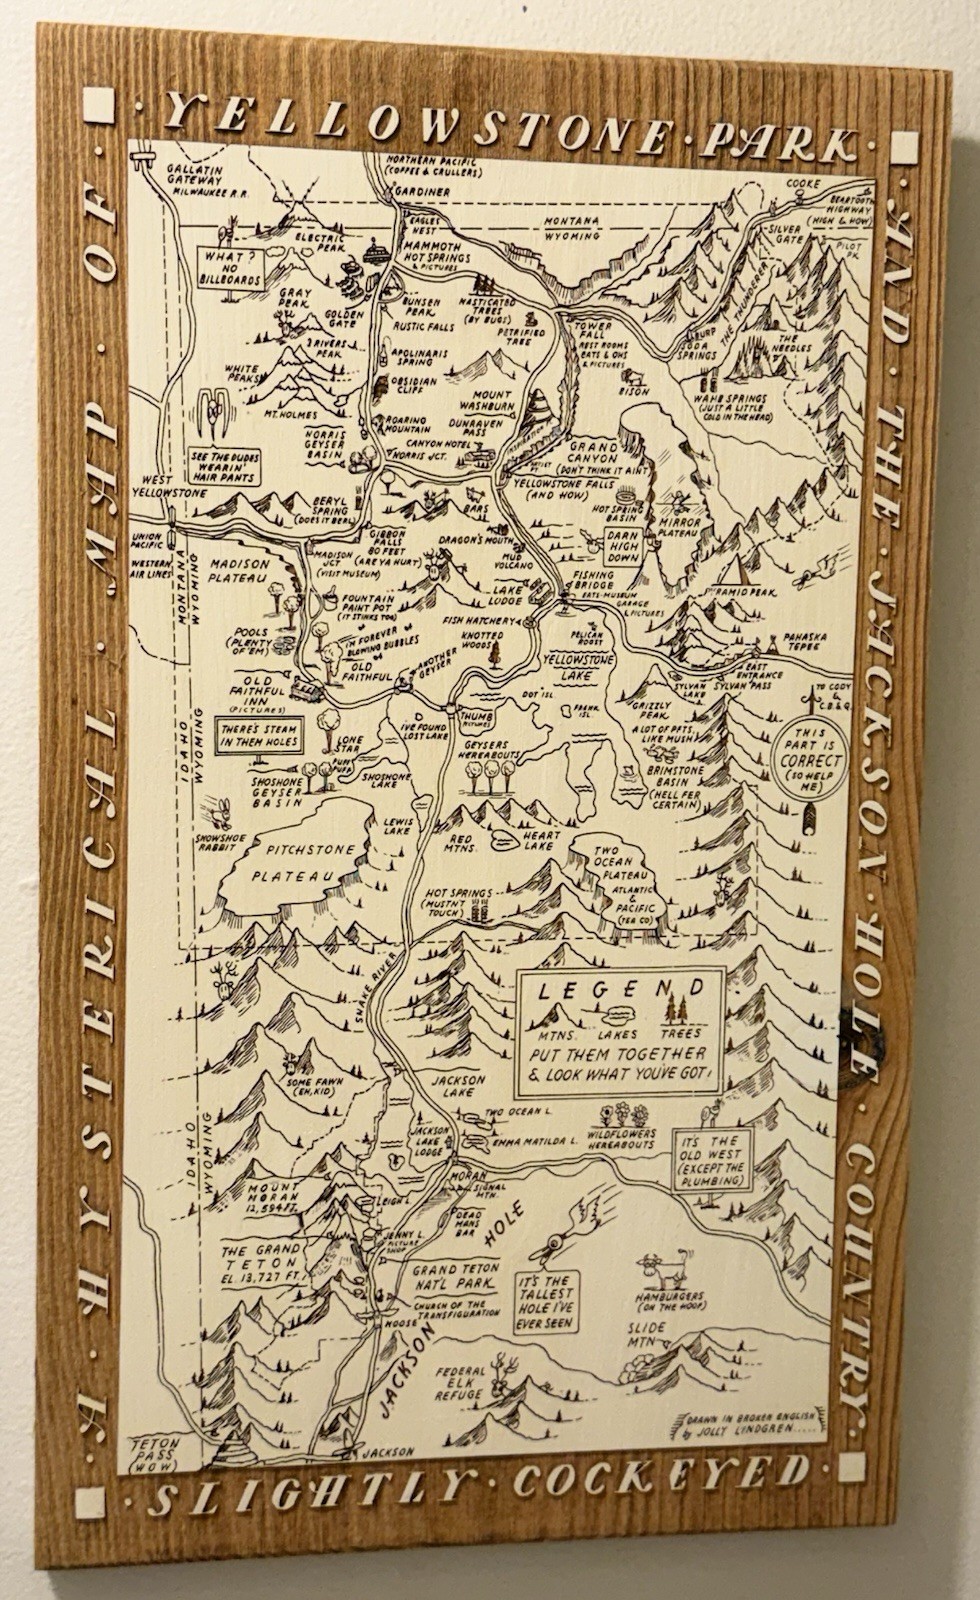 A HYSTERICAL MAP OF
· YELLOWSTONE · PARK ·
· AND · THE · JACKSON · HOLE · COUNTRY ·
· SLIGHTLY · COCKEYED ·
GALLATIN
GATEWAY
MILWAUKEE R.R.
NORTHERN PACIFIC
(COFFEE & CRULLERS)
GARDINER
EAGLES
NEST
COOKE
BEARTOOTH
HIGHWAY
(HIGH & HOW)
MONTANA
WYOMING
SILVER
GATE
PILOT
PK.
ELECTRIC
PEAK
WHAT?
NO
BILLBOARDS
MAMMOTH
HOT SPRINGS
& PICTURES
GRAY
PEAK
GOLDEN
GATE
BUNSEN
PEAK
RUSTIC FALLS
MASTICATED
TREES
(BY BUGS)
PETRIFIED
TREE
TOWER
FALL
REST ROOMS
EATS & OHS
& PICTURES
BURP
SODA
SPRINGS
THE THUNDERER
THE
NEEDLES
3 RIVERS
PEAK
APOLINARIS
SPRING
WHITE
PEAKS
OBSIDIAN
CLIFF
BISON
WAHB SPRINGS
(JUST A LITTLE
COLD IN THE HEAD)
MT. HOLMES
MOUNT
WASHBURN
DUNRAVEN
PASS
ROARING
MOUNTAIN
NORRIS
GEYSER
BASIN
CANYON HOTEL
NORRIS JCT.
INSPIRATION
GRAND
CANYON
(DON'T THINK IT AIN'T)
SEE THE DUDES
WEARIN'
HAIR PANTS
WEST
YELLOWSTONE
YELLOWSTONE FALLS
(AND HOW)
BERYL
SPRING
(DOES IT BERL)
BARS
HOT SPRING
BASIN
MIRROR
PLATEAU
UNION
PACIFIC
WESTERN
AIR LINES
MONTANA
WYOMING
MADISON
PLATEAU
MADISON
JCT
(VISIT MUSEUM)
GIBBON
FALLS
80 FEET
(ARE YA HURT)
DRAGON'S MOUTH
MUD
VOLCANO
DARN
HIGH
DOWN
LAKE
LODGE
FISHING
BRIDGE
EATS-MUSEUM
GARAGE
& PICTURES
PYRAMID PEAK
FOUNTAIN
PAINT POT
(IT STINKS TOO)
FISH HATCHERY
KNOTTED
WOODS
PELICAN
ROOST
PAHASKA
TEPEE
POOLS
(PLENTY
OF 'EM)
I'M FOREVER
BLOWING BUBBLES
OLD
FAITHFUL
ANOTHER
GEYSER
YELLOWSTONE
LAKE
EAST
ENTRANCE
SYLVAN
LAKE
SYLVAN PASS
TO CODY
& C.B.& Q.
OLD
FAITHFUL
INN
(PICTURES)
DOT ISL
FRANK
ISL
GRIZZLY
PEAK
I'VE FOUND
LOST LAKE
THUMB
PICTURES
THERE'S STEAM
IN THEM HOLES
LONE
STAR
A LOT OF PFTS
LIKE MUSH
THIS
PART IS
CORRECT
(SO HELP
ME)
GEYSERS
HEREABOUTS
BRIMSTONE
BASIN
(HELL FER
CERTAIN)
SHOSHONE
GEYSER
BASIN
SHOSHONE
LAKE
IDAHO
WYOMING
SNOWSHOE
RABBIT
PITCHSTONE
PLATEAU
LEWIS
LAKE
RED
MTNS.
HEART
LAKE
TWO
OCEAN
PLATEAU
ATLANTIC
&
PACIFIC
(TEA CO)
HOT SPRINGS
(MUSTN'T
TOUCH)
SNAKE RIVER
LEGEND
MTNS. LAKES TREES
PUT THEM TOGETHER
& LOOK WHAT YOU'VE GOT!
SOME FAWN
(EH, KID)
JACKSON
LAKE
TWO OCEAN L.
EMMA MATILDA L.
JACKSON
LAKE
LODGE
WILDFLOWERS
HEREABOUTS
IT'S THE
OLD WEST
(EXCEPT THE
PLUMBING)
IDAHO
WYOMING
MORAN
SIGNAL
MTN.
MOUNT
MORAN
12,594 FT.
LEIGH L
DEAD
MANS
BAR
JENNY L.
PICTURE
SHOP
THE GRAND
TETON
EL. 13,727 FT.
GRAND TETON
NAT'L PARK
CHURCH OF THE
TRANSFIGURATION
MOOSE
JACKSON HOLE
IT'S THE
TALLEST
HOLE I'VE
EVER SEEN
HAMBURGERS
(ON THE HOOF)
SLIDE
MTN
FEDERAL
ELK
REFUGE
TETON
PASS
(WOW)
JACKSON
DRAWN IN BROKEN ENGLISH
by JOLLY LINDGREN.....